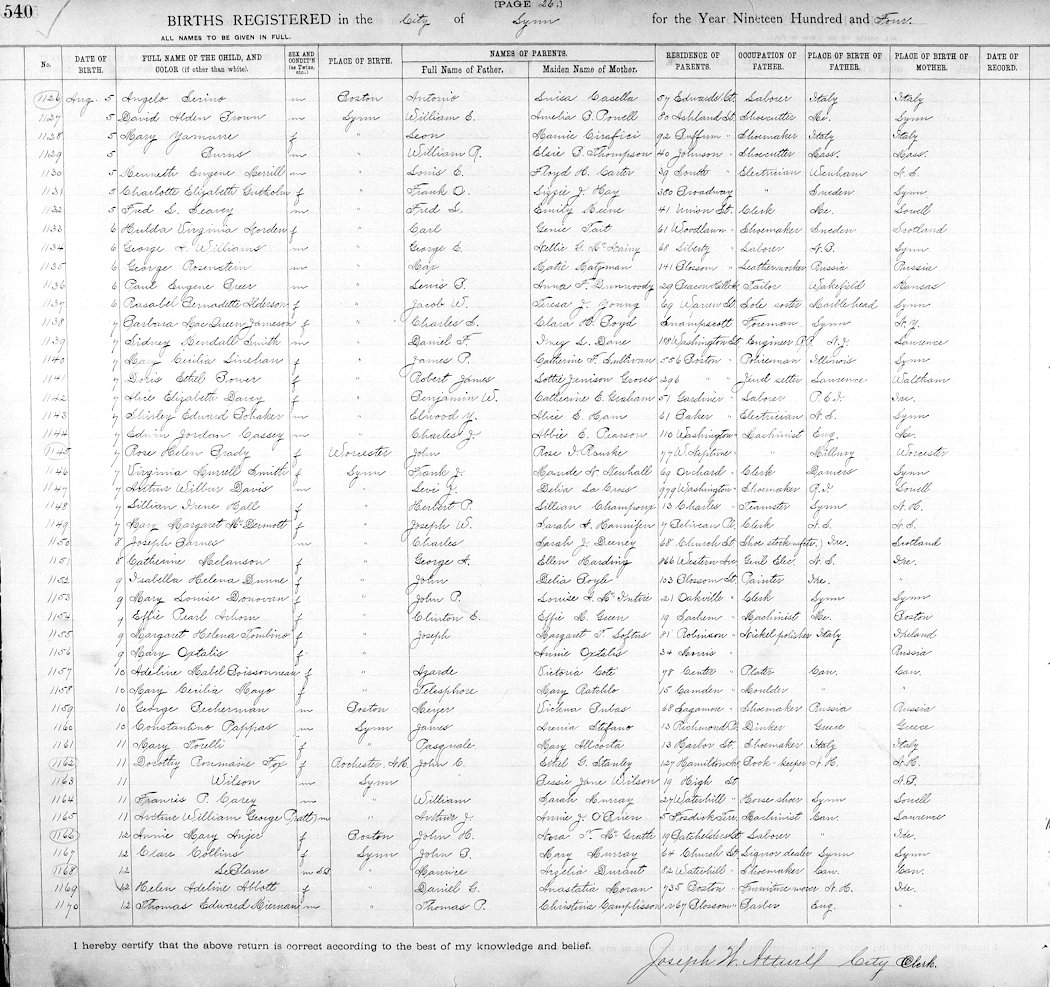 540
[PAGE 26.]
BIRTHS REGISTERED in the City of Lynn for the Year Nineteen Hundred and Four.
ALL NAMES TO BE GIVEN IN FULL.
No. DATE OF BIRTH. FULL NAME OF THE CHILD, AND COLOR (if other than white). SEX AND CONDIT'N (as Twins, etc.) PLACE OF BIRTH. NAMES OF PARENTS. Full Name of Father. Maiden Name of Mother. RESIDENCE OF PARENTS. OCCUPATION OF FATHER. PLACE OF BIRTH OF FATHER. PLACE OF BIRTH OF MOTHER. DATE OF RECORD.
1126 Aug. 5 Angelo m Boston Antonio Luisa Casella 57 Edwards Ct. Laborer Italy Italy
1127 5 David Alden m Lynn William E. Amelia B. Powell 80 Ashland St. Shoecutter Me. Lynn
1128 5 Mary f " Leon Mamie Cirafici 92 Buffum " Shoemaker Italy Italy
1129 5 Burns m " William R. Elsie B. Thompson 40 Johnson " Shoecutter Mass. Mass.
1130 5 Kenneth Eugene Merrill m " Louis E. Floyd H. Carter 39 South " Electrician Wenham N.S.
1131 5 Charlotte Elizabeth f " Frank O. Lizzie J. Hay 380 Broadway " Sweden Lynn
1132 5 Fred L. Seavey m " Fred L. Emily Keene 41 Union St. Clerk Me. Lowell
1133 6 Hulda Virginia f " Carl Genie Tait 61 Woodlawn " Shoemaker Sweden Scotland
1134 6 George Williams m " George E. Nellie G. 68 Liberty " Laborer N.B. Lynn
1135 6 George Rosenstein m " Max Katie Katzman 141 Blossom " Leatherworker Russia Russia
1136 6 Paul Eugene Greer m " Lewis B. Anna F. Dunwoody 29 Beacon Hill Av. Tailor Wakefield Kansas
1137 6 Rusabel Bernadette Alderson f " Jacob W. Teresa J. Young 69 Warren St. Sole sorter Marblehead Lynn
1138 7 Barbara MacQueen Jameson f " Charles S. Clara B. Boyd Swampscott Foreman Lynn N.Y.
1139 7 Sidney Kendall Smith m " Daniel F. Inez L. Dane 188 Washington St. Engineer R.R. N.J. Lawrence
1140 7 May Cecilia Linehan f " James P. Catherine F. Sullivan 556 Boston " Policeman Illinois Lynn
1141 7 Doris Ethel Tower f " Robert James Lottie Jenison Groves 296 " " Lawrence Waltham
1142 7 Alice Elizabeth Davey f " Benjamin W. Catherine E. Graham 51 Gardiner " Laborer P.E.I. Ire.
1143 7 Shirley Edward Bohaker m " Elwood Y. Alice E. Ham 61 Baker " Electrician N.S. Lynn
1144 7 Edwin Jordan Cassey m " Charles J. Abbie E. Pearson 110 Washington " Machinist Eng. Me.
1145 7 Rose Helen Brady f Worcester John Rose I. Rourke 77 W. Neptune " " Millbury Worcester
1146 7 Virginia Murrell Smith f Lynn Frank J. Maude N. Newhall 69 Orchard " Clerk Danvers Lynn
1147 7 Arthur Wilbur Davis m " Levi J. Delia La Cross 979 Washington " Shoemaker R.I. Lowell
1148 7 Lillian Irene Hall f " Herbert P. Lillian Champony 13 Charles " Teamster Lynn N.H.
1149 7 Mary Margaret McDermott f " Joseph W. Sarah A. Hannifen 7 Clerk N.S. N.S.
1150 8 Joseph Barnes m " Charles Sarah J. Deeney 68 Church St. Shoe stock mfctr. Ire. Scotland
1151 8 Catherine Melanson f " George A. Ellen Harding 866 Western Ave. Genl Elec. N.S. Ire.
1152 9 Isabella Helena Dunne f " John Delia Boyle 103 Blossom St. Painter Ire. "
1153 9 Mary Louise Donovan f " John P. Louise A. McIntire 121 Oakville " Clerk Lynn Lynn
1154 9 Effie Pearl Achorn f " Clinton E. Effie M. Green 19 Sachem " Machinist Me. Boston
1155 9 Margaret Helena Tomlins f " Joseph Margaret T. Loftus 81 Robinson " Nickel polisher Italy Ireland
1156 9 Mary Oxtalis f " Annie Oxtalis 34 Morris " Russia
1157 10 Adeline Mabel Boissonneau f " Azarde Victoria Coté 78 Center " Plater Can. Can.
1158 10 Mary Cecilia Mayo f " Telesphore Mary Ratchlo 15 Camden " Moulder " "
1159 10 George Beckerman m Boston Meyer Victena Bubas 68 Sagamore " Shoemaker Russia Russia
1160 10 Constantino Pappas m Lynn James Irenia Stefano 13 Richmond Pl. Dinker Greece Greece
1161 11 Mary Torelli f " Pasquale Mary Allcorta 13 Harbor St. Shoemaker Italy Italy
1162 11 Dorothy Roumaine Fox f Rochester, N.H. John C. Ethel G. Stanley 127 Hamilton Av. Book-keeper N.H. N.H.
1163 11 Wilson m Lynn Bessie Jane Wilson 19 High St. N.B.
1164 11 Francis P. Carey m " William Sarah Murray 27 Waterhill " Horse shoer Lynn Lowell
1165 11 Arthur William George Pratt m " Arthur J. Annie J. O'Brien 5 Terr. Machinist Can. Lawrence
1166 12 Annie Mary Anjer f Boston John H. Nora T. McGrath 19 Batchelder St. Laborer " Ire.
1167 12 Clare Collins f Lynn John B. Mary Murray 64 Church St. Liquor dealer Lynn Lynn
1168 12 LeBlanc m S.B. " Maurice Azelia Durant 82 Waterhill " Shoemaker Can. Can.
1169 12 Helen Adeline Abbott f " Daniel G. Anastatia Moran 735 Boston " Furniture mover N.H. Ire.
1170 12 Thomas Edward Kiernan m " Thomas P. Christina Gamphisson 267 Blossom " Barber Eng. "
I hereby certify that the above return is correct according to the best of my knowledge and belief.
Joseph W. Attwill City Clerk.